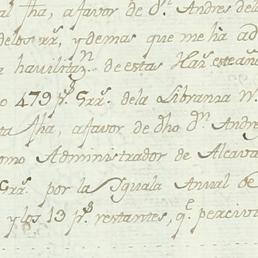 al fha, a favor de Dn. Andres dela
delos rr̃s, y demas que me ha ad
a havilitazn. de estas Han.s este añ
o 479 ps. 5 rr̃s. dela Libranza N.
ta fha, a favor de dho Dn. Andre
omo Administrador de Alcava
5 rr̃s. por la Yguala Anual de
y los 13 ps. restantes, qe. percivi